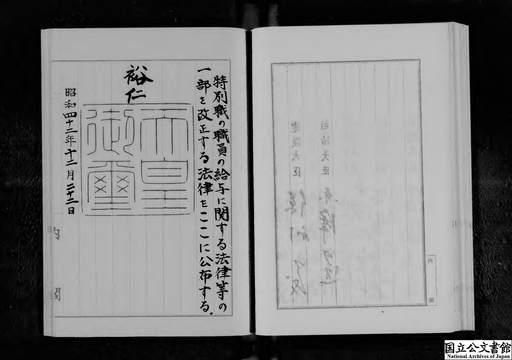 特別職の職員の給与に関する法律等の
一部を改正する法律をここに公布する。
裕仁
天皇
御璽
昭和四十二年十二月二十二日
内閣
自治大臣
建設大臣
内閣
国立公文書館
National Archives of Japan